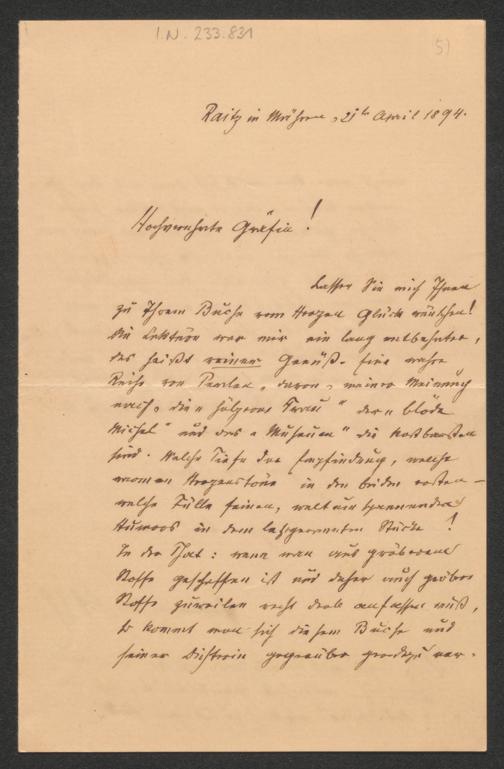 I.N. 233.831
51
Raitz in Mähren, 21te April 1894.
Hochverehrte Gräfin!
Lassen Sie mich Ihnen
zu Ihrem Buche vom Herzen Glück wünschen!
Die Lektüre war mir ein lang entbehrter,
das heißt reiner Genuß. Eine wahre
Reihe von Perlen, davon, meiner Meinung
nach, die " hölzerne Frau" der " blöde
Michel" und das "Museum" die kostbarsten
sind. Welche Tiefe der Empfindung, welche
warmen Herzenstöne in den beiden ersten –
welche Fülle feinen, weltumspannenden
Humors in dem letztgenannten Stücke!
In der That: wenn man aus gröberem
Stoffe geschaffen ist und daher auch gröbere
Stoffe zuweilen recht derb anfassen muß,
so kommt man sich diesem Buche und
seiner Dichterin gegenüber geradezu vor.